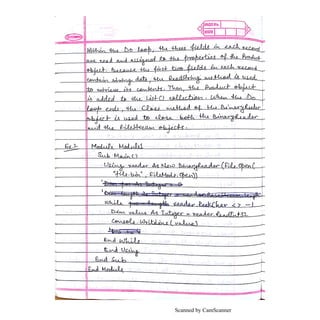 Within the Do loop, the three fields in each record
are read and assigned to the properties of the Product
object. Because the first two fields in each record
contain string data, the ReadString method is used
to retrieve its contents. Then, the Product object
is added to the List() collection. When the Do
loop ends, the Close method of the BinaryReader
object is used to close both the BinaryReader
and the FileStream objects.
Ex:2 Module Module1
Sub Main()
Using reader As New BinaryReader(File.Open(
"file.bin", FileMode.Open))
While reader.PeekChar <> -1
Dim value As Integer = reader.ReadInt32
Console.WriteLine(value)
End While
End Using
End Sub
End Module
Scanned by CamScanner